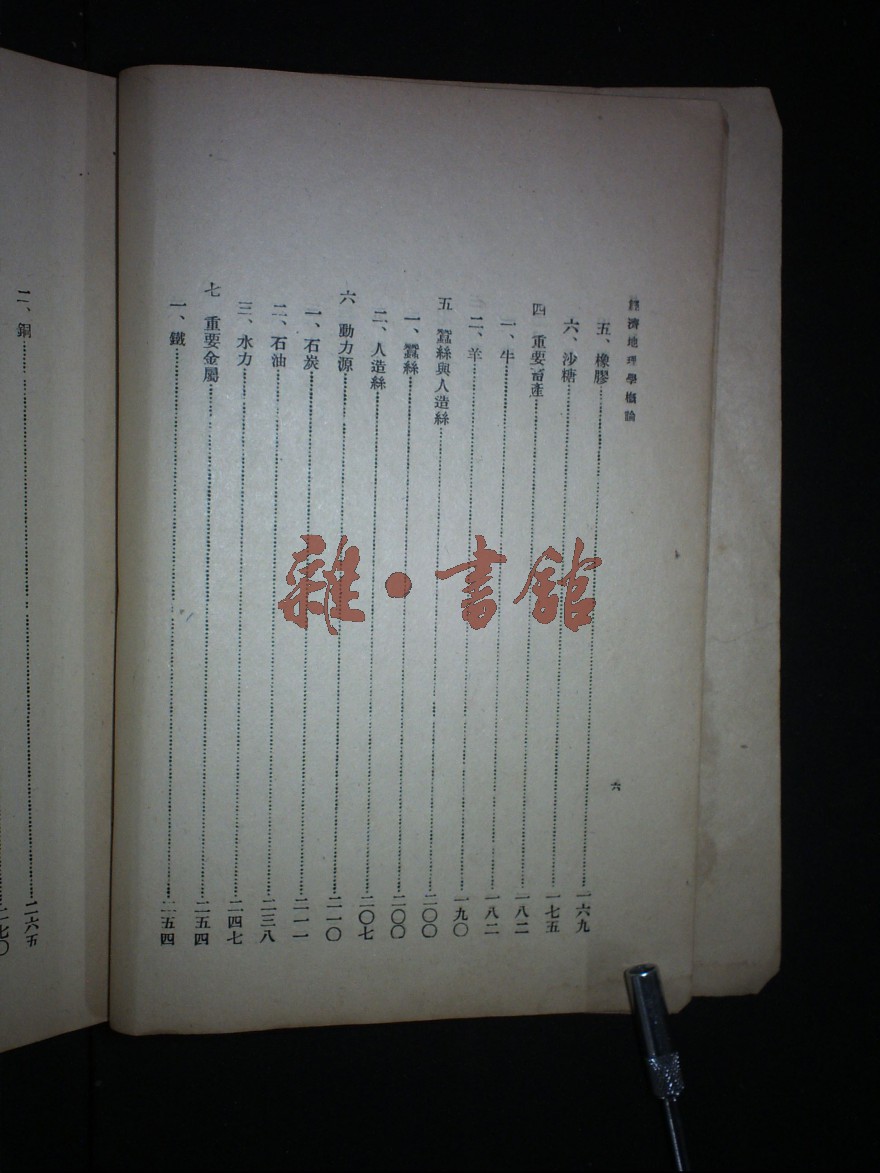 經濟地理學概論
六
五、橡膠 一六九
六、沙糖 一七五
四 重要畜產 一八二
一、牛 一八二
二、羊 一九〇
五 蠶絲與人造絲 二〇〇
一、蠶絲 二〇〇
二、人造絲 二〇七
六 動力源 二一〇
一、石炭 二一一
二、石油 二三八
三、水力 二四七
七 重要金屬 二五四
一、鐵 二五四
二、銅 二六五
二七〇
雜·書館